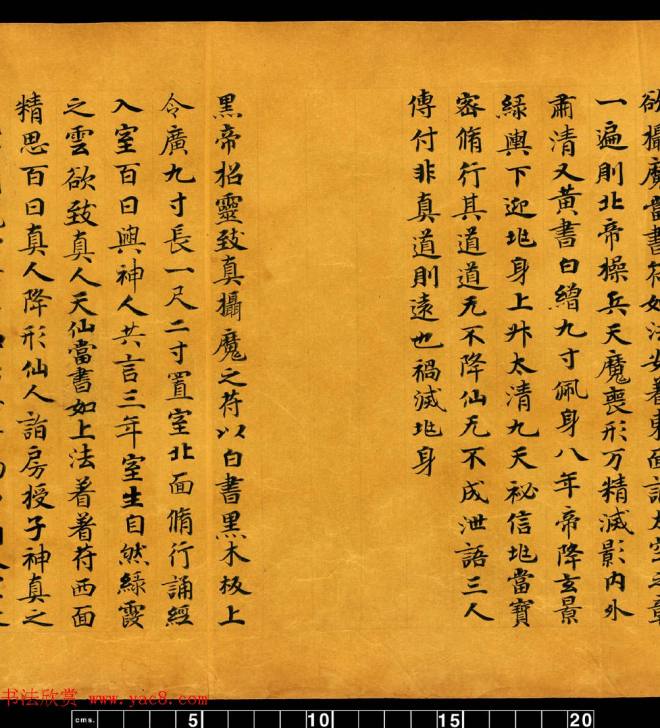 欲攝魔當書符如法安著東面誦太空之章
一遍則北帝操兵天魔喪形万精滅影內外
肅清又黃書白繒九寸佩身八年帝降玄景
綠輿下迎坨身上升太清九天祕信坨當寶
密脩行其道道无不降仙无不成泄語三人
傳付非真道則遠也禍滅坨身
黑帝招靈致真攝魔之符以白書黑木板上
令廣九寸長一尺二寸置室北面脩行誦經
入室百日與神人共言三年室生自然綠霞
之雲欲致真人天仙當書如上法着著符西面
精思百日真人降形仙人詣房授子神真之
书法欣赏 www.yac8.com
cms. 5 10 15 20